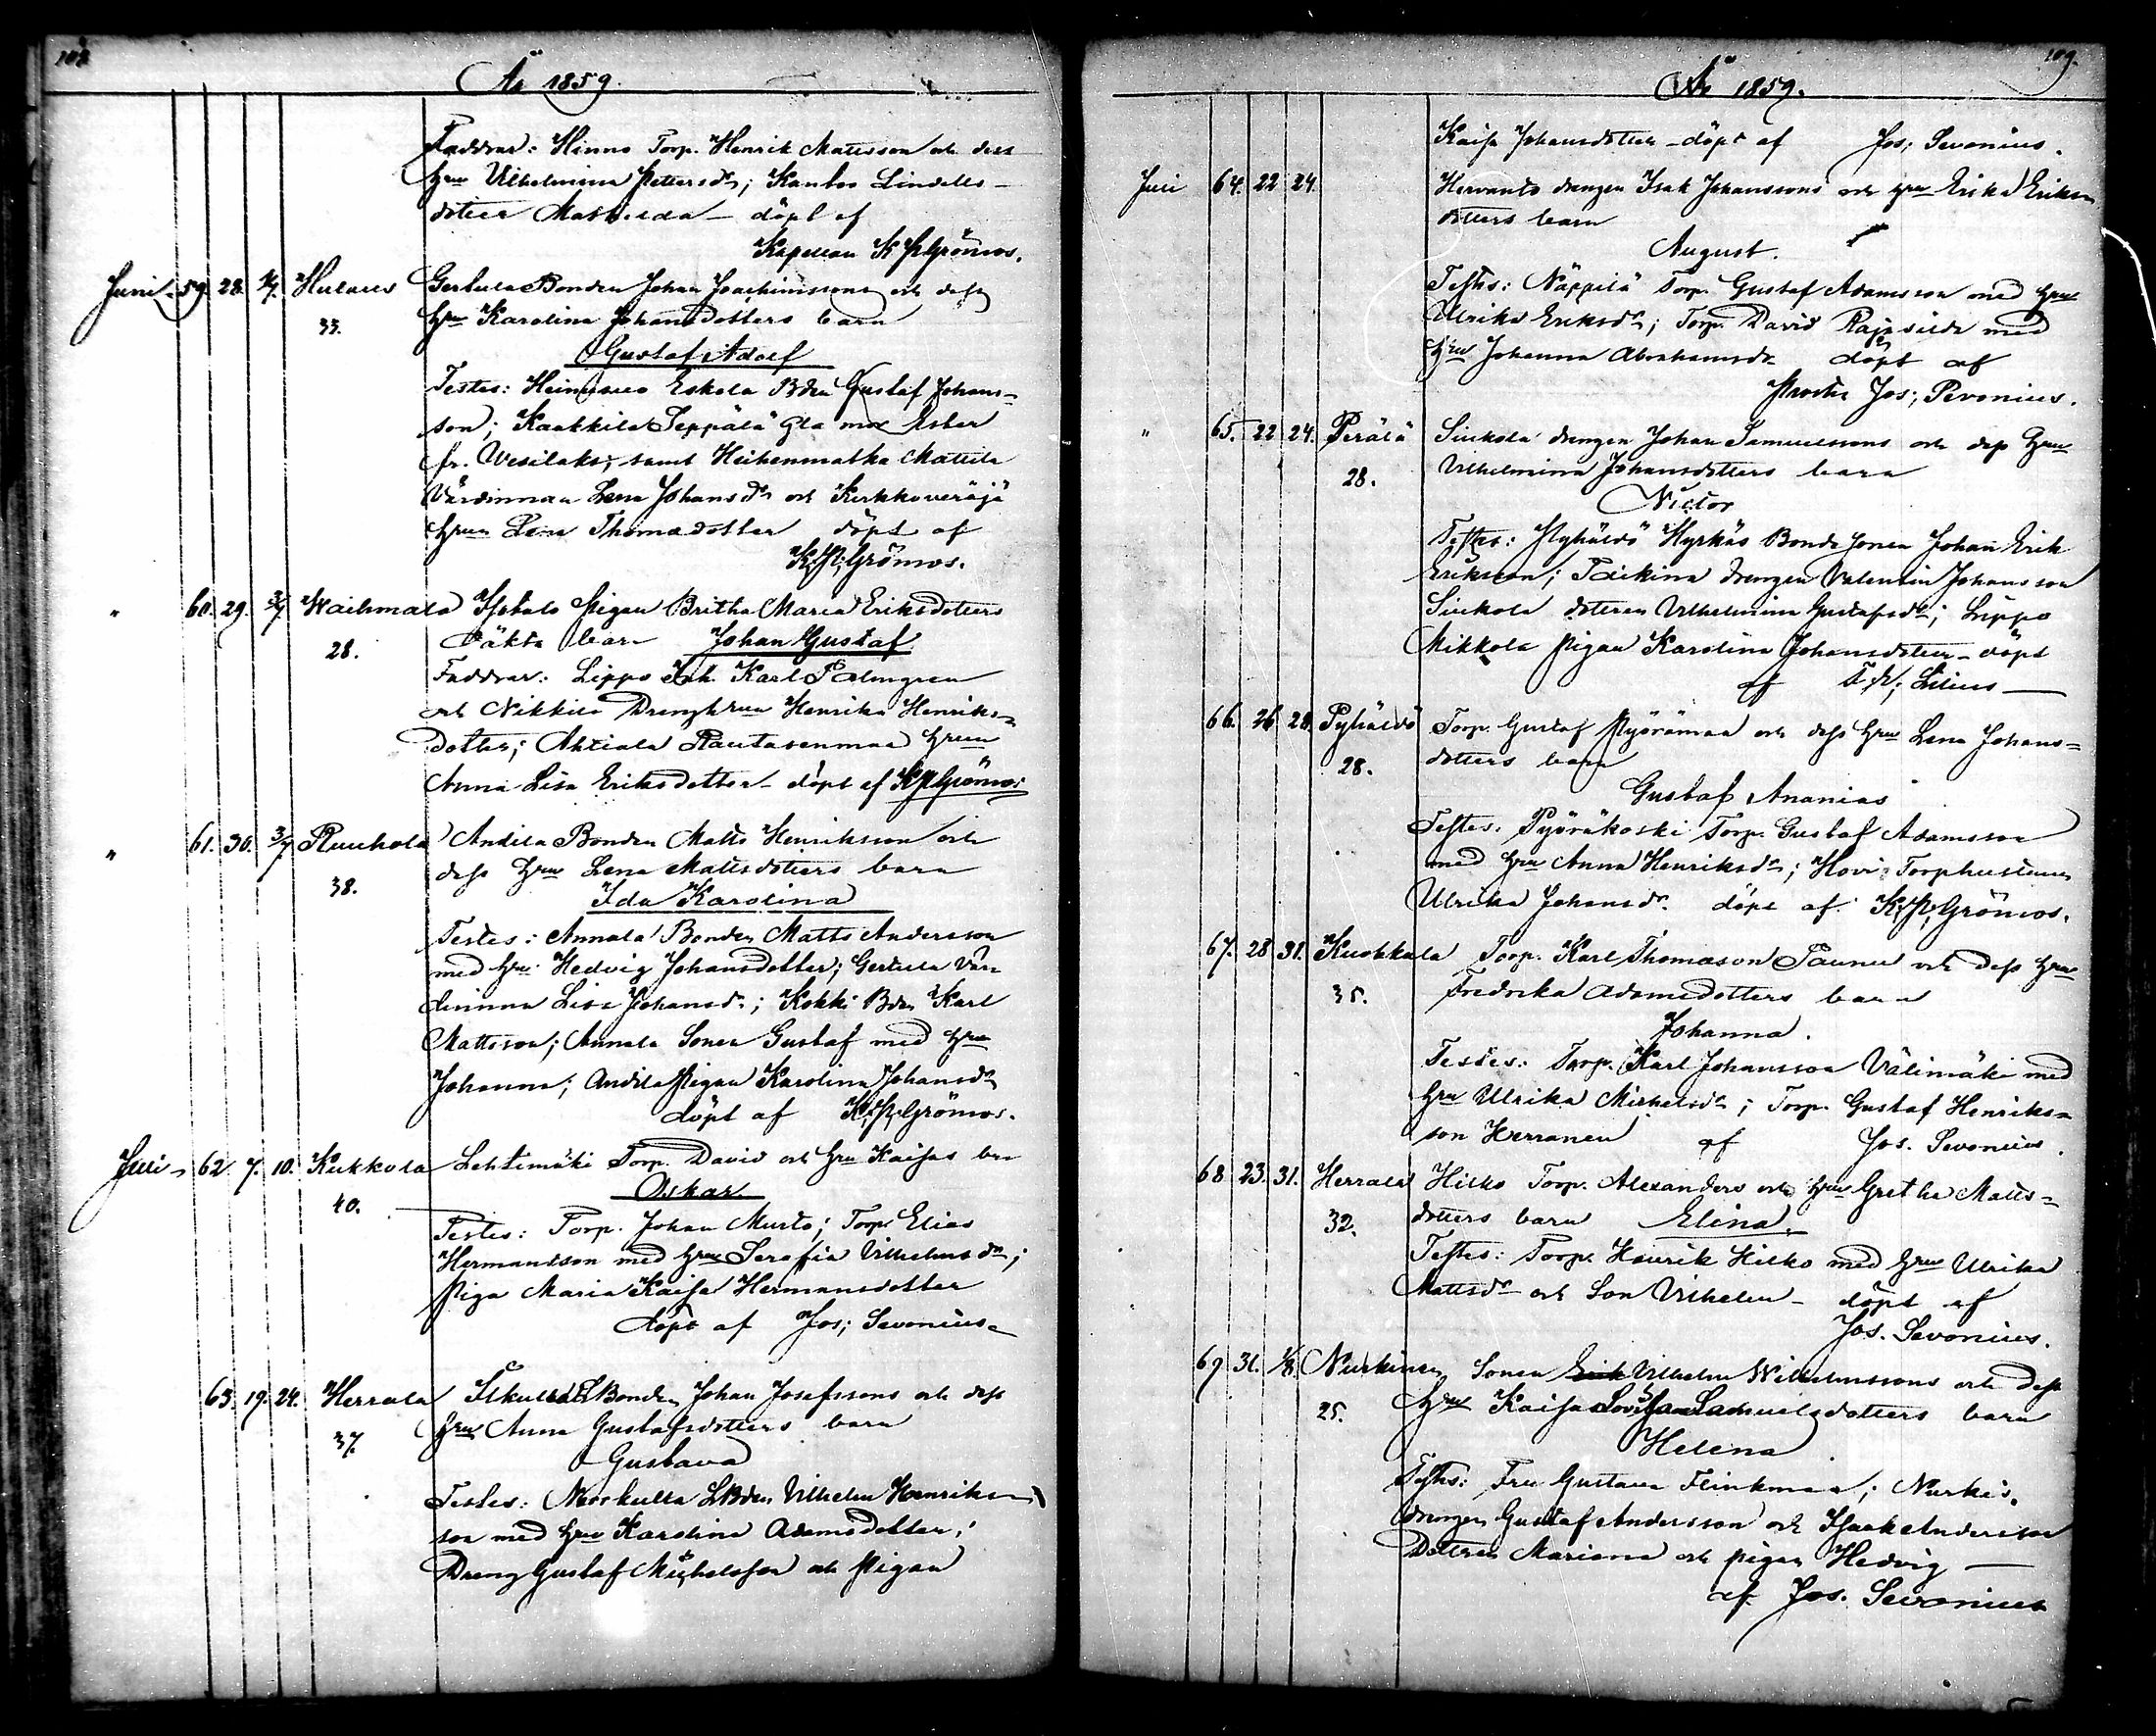 108.
År 1859.
Faddrar: Hinno Torp. Henrik Mattsson och dess
hru Vilhelmina Pettersdr; Lindells-
dotter Mathilda – döpt af
Kapellan K. P. Grönros.
Juni 59. 28. Hulaus Gerkula Bonden Johan Joachimssons och dess
33. hru Karolina Johansdotters barn
Gustaf Adolf
Testes: Eskola Bdn Gustaf Johans-
son; Kaakkila Seppälä Gla mor Ester
fr. Vesilaks, samt Heikenmatka Mattila
Värdinnan Lena Johansdr och
hrun Lena Thomædotter döpt af
K. P. Grönros.
" 60. 29. 3/7 Waihmala Pigan Britha Maria Eriksdotters
28. oäkta barn Johan Gustaf
Faddrar: Lippo Karl Palmgren
och Nikkilä Drenghrun Henrika Henriks-
dotter; Ahtiala Rautasenmaa hrun
Anna Lisa Eriksdotter – döpt af K. P. Grönros
" 61. 30. 3/7 Ruuhola Andila Bonden Matts Henriksson och
38. dess hru Lena Mattsdotters barn
Ida Karolina
Testes: Annala Bonden Matts Andersson
med hru Hedvig Johansdotter; Gerkula Vär-
dinnna Lisa Johansdr; Kokki Bdn Karl
Mattsson; Annala Sonen Gustaf med hru
Johanna; Andila Pigan Karolina Johansdr
döpt af K. P. Grönros.
Juli 62. 7. 10. Kukkola Lehtimäki Torp. David och hru Kaisas barn
40. Oskar
Testes: Torp. Johan Murto; Torp. Elias
Hermansson med hru Serafia Vilhelmsdr;
Piga Maria Kaisa Hermansdotter
döpt af Jos; Sevonius
63. 19. 24. Herrala Bonden Johan Josefssons och dess
37. hru Anna Gustafsdotters barn
Gustava
Testes: Vilhelm Henriks-
son med hru Karolina Adamsdotter;
Dreng Gustaf Michelsson och Pigan
109.
År 1859.
Kaisa Johansdotter – döpt af Jos; Sevonius.
Juli 64. 22 24. Hervanto drengen Isak Johanssons och hru Erika Eriks-
dotters barn
August.
Testes: Näppilä Torp. Gustaf Adamsson med hru
Ulrika Eriksdr; Torp. David med
hru Johanna Abrahamsdr döpt af
Prosten Jos; Sevonius.
" 65. 22 24. Perälä Sinkola drengen Johan Samuelssons och dess hru
28. Vilhelmina Johansdotters barn
Victor
Testes: Pyhäldö Hyrkäs Bonde sonen Johan Erik
Eriksson; drengen Valentin Johansson
Sinkola dottren Vilhelmina Gustafsdr; Lippo
Mikkola Pigan Karolina Johansdotter – döpt
af Lilius
66. 26 28. Pyhäldö Torp. Gustaf Pyörämaa och dess hru Lena Johans-
28. dotters barn
Gustaf Ananias
Testes: Pyöräkoski Torp. Gustaf Adamsson
med hru Anna Henriksdr; Hovi Torphustrun
Ulrika Johansdr. döpt af K. P. Grönros.
67. 28 31. Kuokkala Torp. Karl Thomasson Paunu och dess hru
35. Fredrika Adamsdotters barn
Johanna.
Testes: Torp. Karl Johansson Välimäki med
hru Ulrika Michelsdr; Torp. Gustaf Henriks-
son Herranen af Jos. Sevonius.
68 23. 31. Herrala Hilko Torp. Alexanders och hru Gretha Matts-
32. dotters barn Elina.
Testes: Torp. Henrik Hilko med hru Ulrika
Mattsdr och Son Vilhelm – döpt af
Jos. Sevonius.
69 31. Nurkinen Sonen Erik Vilhelm Wilhelmssons och dess
25. hru Kaisa Lovisa Samuelsdotters barn
Helena
Testes: Fru Gustava Flinkman; Nurkis.
drengen Gustaf Andersson och Isaak Andersson
Dottren Mariana och pigan Hedvig –
af Jos. Sevonius